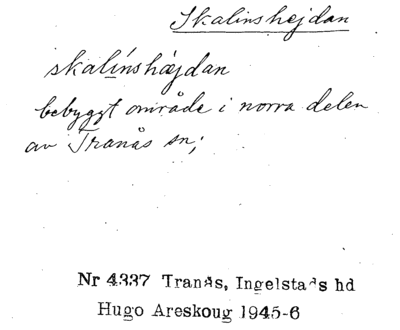 Skalinshejdan
skalínshæjdan
bebyggt område i norra delen
av Tranås sn;
Nr 4337 Tranås, Ingelstads hd
Hugo Areskoug 1945-6